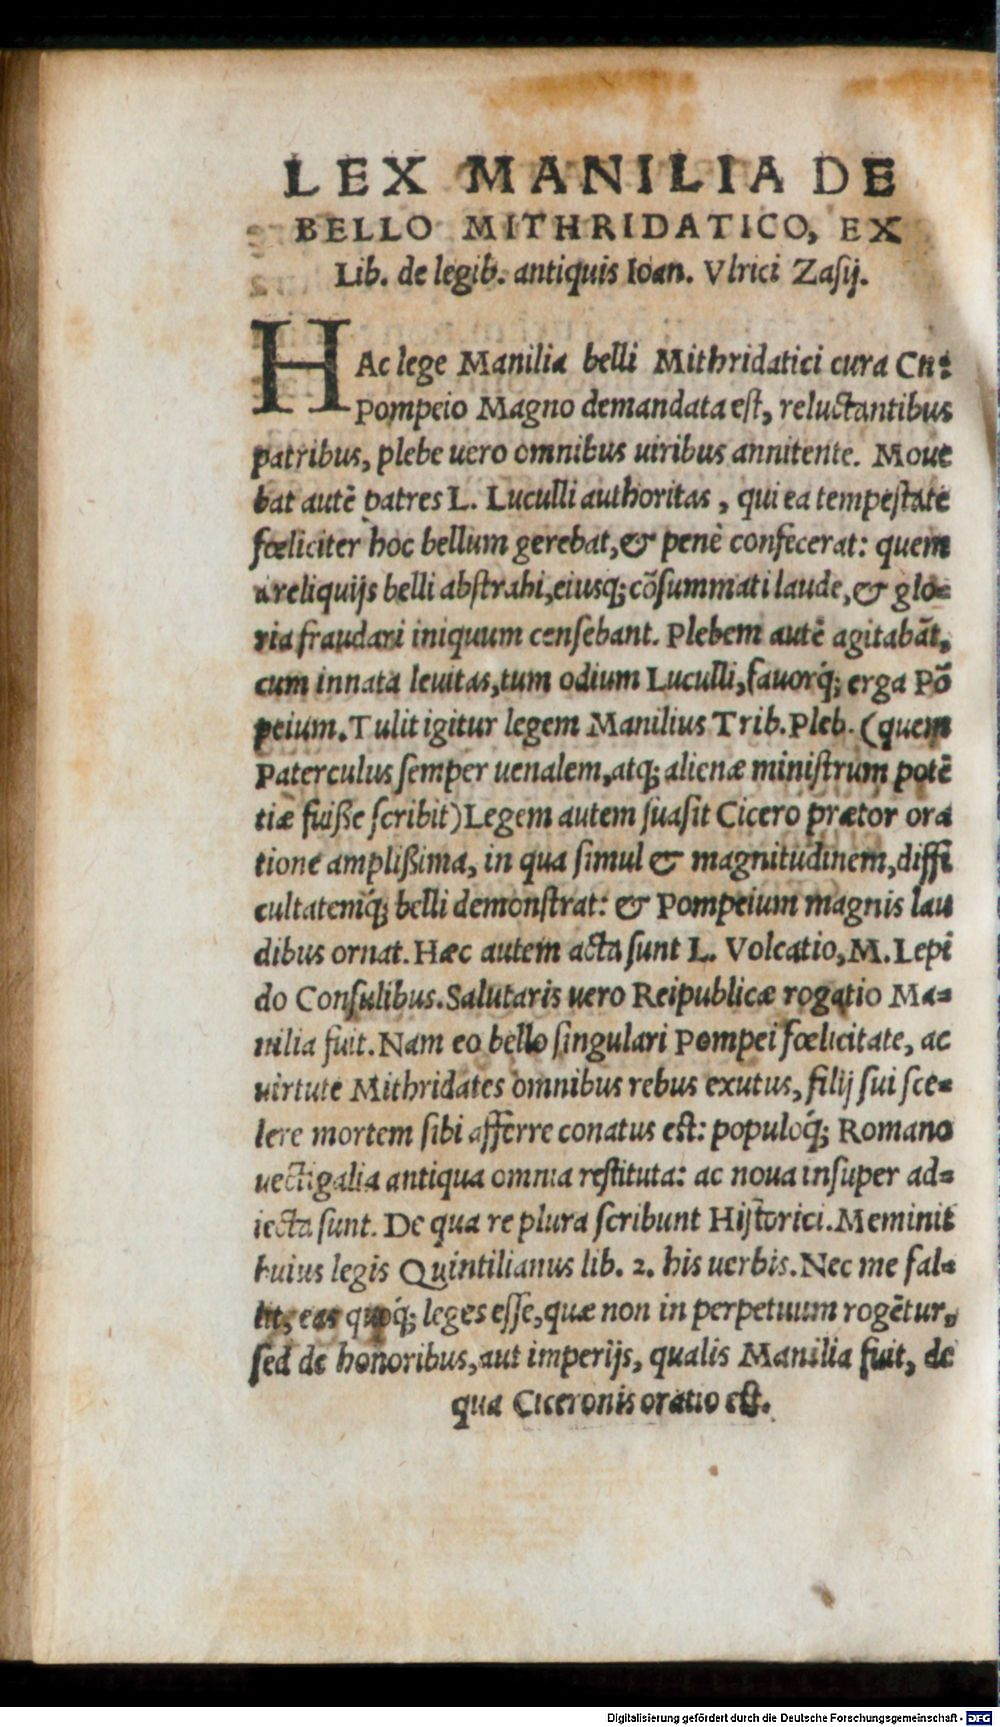 LEX MANILIA DE
BELLO MITHRIDATICO, EX
Lib. de legib. antiquis Ioan. Vlrici Zasij.
HAc lege Manilia belli Mithridatici cura Cn:
Pompeio Magno demandata est, reluctantibus
patribus, plebe uero omnibus uiribus annitente. Moue
bat autē patres L. Luculli authoritas, qui ea tempestate
fœliciter hoc bellum gerebat, & penè confecerat: quem
a reliquijs belli abstrahi, eiusq; cōsummati laude, & glo=
ria fraudari iniquum censebant. Plebem autē agitabāt,
cum innata leuitas, tum odium Luculli, fauorq́; erga Pō
peium. Tulit igitur legem Manilius Trib. Pleb. (quem
Paterculus semper uenalem, atq; alienæ ministrum potē
tiæ fuiße scribit) Legem autem suasit Cicero prætor ora
tione amplißima, in qua simul & magnitudinem, diffi
cultatemq́; belli demonstrat: & Pompeium magnis lau
dibus ornat. Hæc autem acta sunt L. Volcatio, M. Lepi
do Consulibus. Salutaris uero Reipublicæ rogatio Ma=
nilia fuit. Nam eo bello singulari Pompei fœlicitate, ac
uirtute Mithridates omnibus rebus exutus, filij sui sce=
lere mortem sibi afferre conatus est: populoq́; Romano
uectigalia antiqua omnia restituta: ac noua insuper ad=
iecta sunt. De qua re plura scribunt Historici. Meminit
huius legis Quintilianus lib. 2. his uerbis. Nec me fal=
lit, eas quoq́; leges esse, quæ non in perpetuum rogētur,
sed de honoribus, aut imperijs, qualis Manilia fuit, de
qua Ciceronis oratio est.
Digitalisierung gefördert durch die Deutsche Forschungsgemeinschaft - DFG